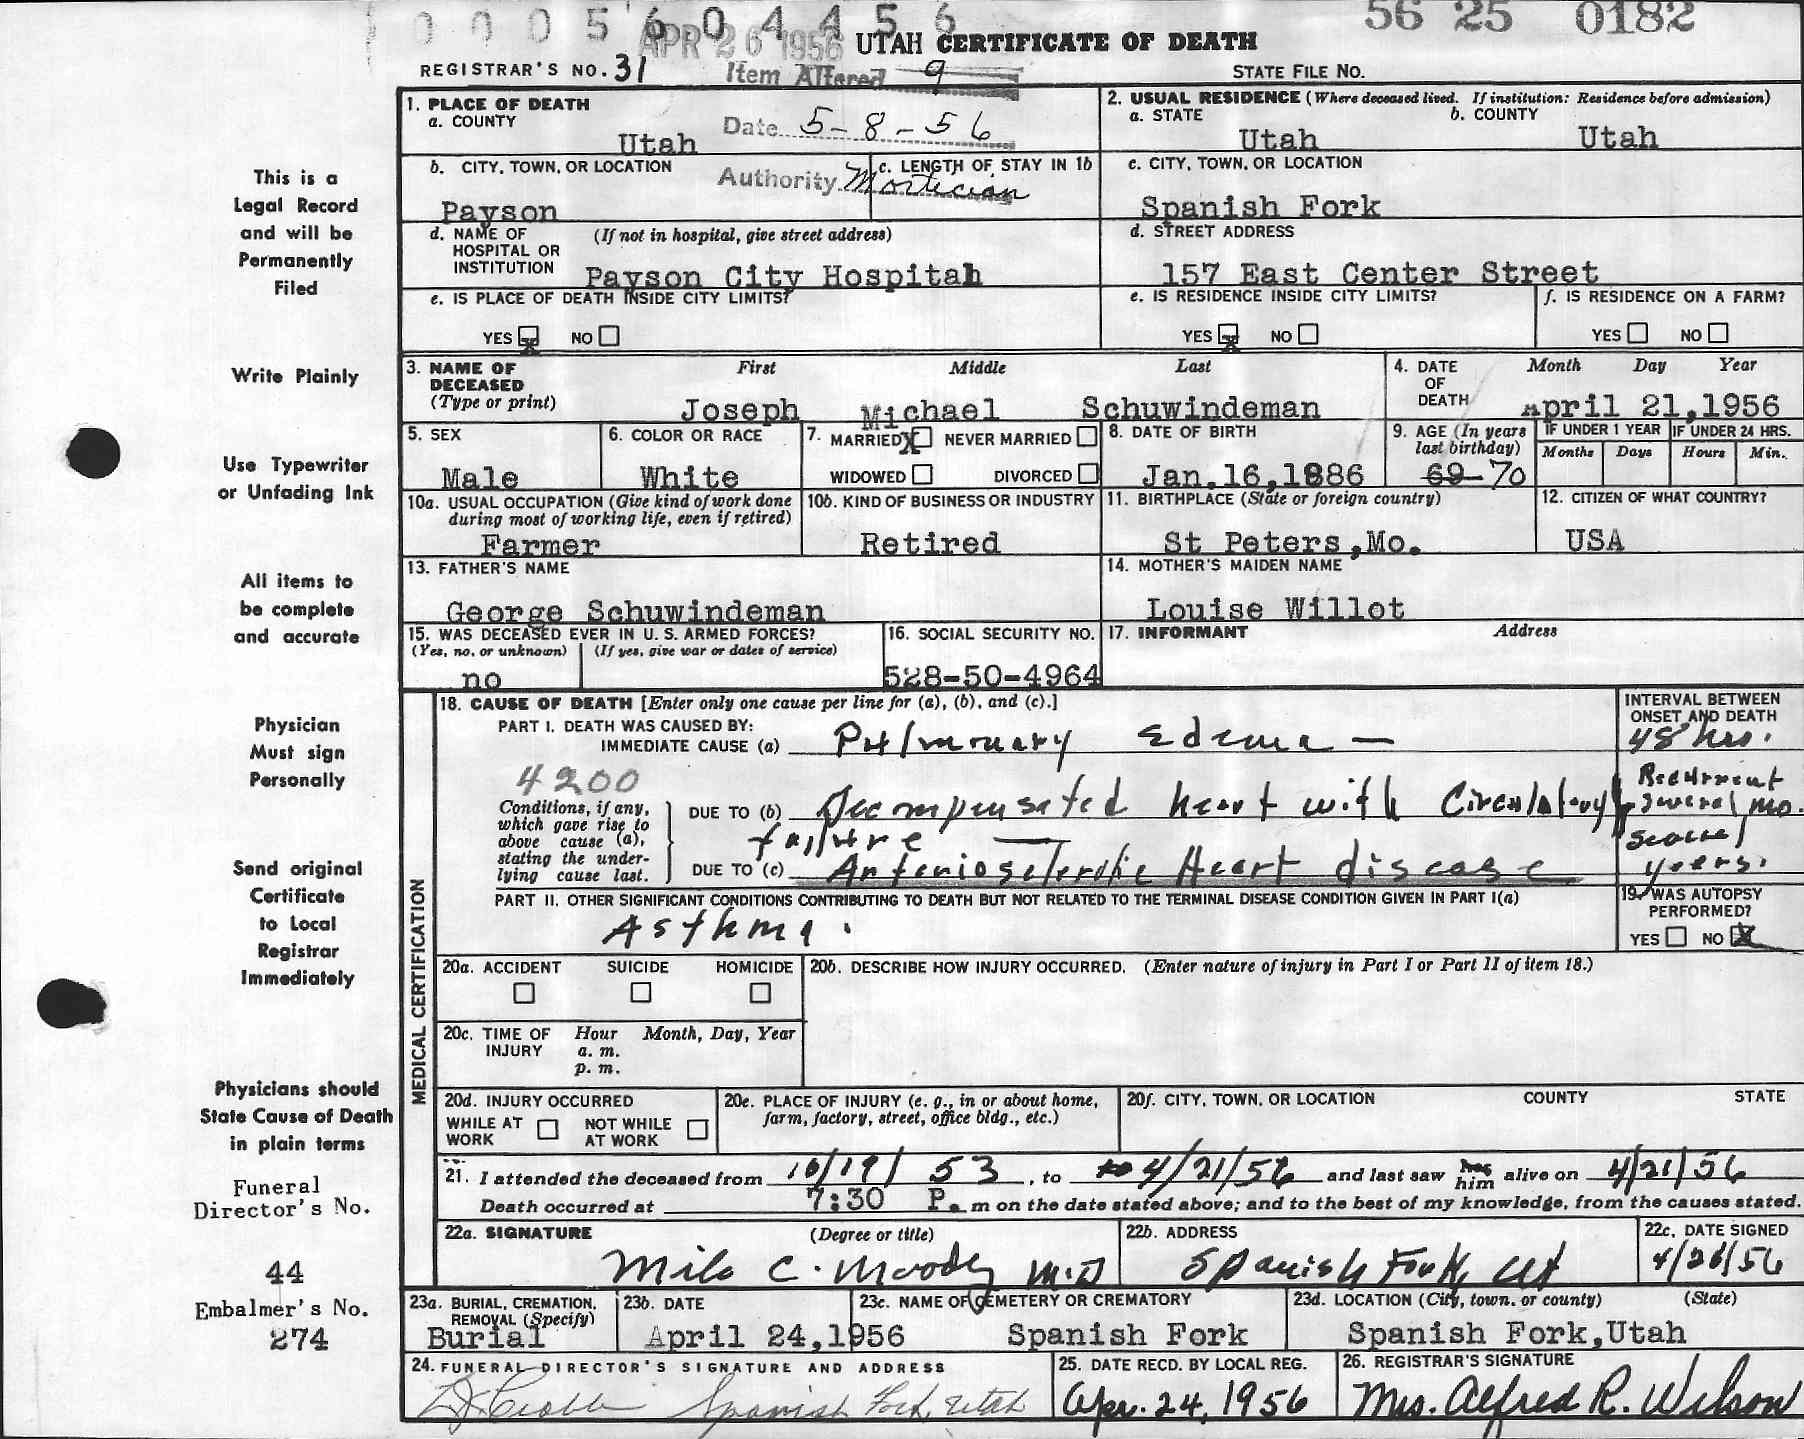 0 0 0 5 6 0 4 4 5 6
APR 26 1956
56 25 0182
UTAH CERTIFICATE OF DEATH
REGISTRAR'S NO. 31
Item Altered 9
STATE FILE NO.
1. PLACE OF DEATH
a. COUNTY
Utah
Date 5-8-56
2. USUAL RESIDENCE (Where deceased lived. If institution: Residence before admission)
a. STATE b. COUNTY
Utah Utah
b. CITY, TOWN, OR LOCATION
Payson
Authority Mortician
c. LENGTH OF STAY IN 1b
c. CITY, TOWN, OR LOCATION
Spanish Fork
d. NAME OF HOSPITAL OR INSTITUTION (If not in hospital, give street address)
Payson City Hospital
d. STREET ADDRESS
157 East Center Street
e. IS PLACE OF DEATH INSIDE CITY LIMITS?
YES X NO
e. IS RESIDENCE INSIDE CITY LIMITS?
YES X NO
f. IS RESIDENCE ON A FARM?
YES NO
3. NAME OF DECEASED (Type or print)
First Middle Last
Joseph Michael Schuwindeman
4. DATE OF DEATH
Month Day Year
April 21,1956
5. SEX
Male
6. COLOR OR RACE
White
7. MARRIED X NEVER MARRIED
WIDOWED DIVORCED
8. DATE OF BIRTH
Jan.16,1886
9. AGE (In years last birthday)
69-70
IF UNDER 1 YEAR
Months Days
IF UNDER 24 HRS.
Hours Min.
10a. USUAL OCCUPATION (Give kind of work done during most of working life, even if retired)
Farmer
10b. KIND OF BUSINESS OR INDUSTRY
Retired
11. BIRTHPLACE (State or foreign country)
St Peters,Mo.
12. CITIZEN OF WHAT COUNTRY?
USA
13. FATHER'S NAME
George Schuwindeman
14. MOTHER'S MAIDEN NAME
Louise Willot
15. WAS DECEASED EVER IN U. S. ARMED FORCES?
(Yes, no, or unknown) (If yes, give war or dates of service)
no
16. SOCIAL SECURITY NO.
528-50-4964
17. INFORMANT Address
MEDICAL CERTIFICATION
18. CAUSE OF DEATH [Enter only one cause per line for (a), (b), and (c).]
PART I. DEATH WAS CAUSED BY:
IMMEDIATE CAUSE (a) Pulmonary Edema —
INTERVAL BETWEEN ONSET AND DEATH
48 hrs.
4200
Conditions, if any, which gave rise to above cause (a), stating the underlying cause last.
DUE TO (b) Decompensated heart with Circulatory failure —
Recurrent several mo.
DUE TO (c) Arteriosclerotic Heart disease
several years.
PART II. OTHER SIGNIFICANT CONDITIONS CONTRIBUTING TO DEATH BUT NOT RELATED TO THE TERMINAL DISEASE CONDITION GIVEN IN PART I(a)
Asthma.
19. WAS AUTOPSY PERFORMED?
YES NO X
20a. ACCIDENT SUICIDE HOMICIDE
20b. DESCRIBE HOW INJURY OCCURRED. (Enter nature of injury in Part I or Part II of item 18.)
20c. TIME OF INJURY Hour Month, Day, Year
a. m.
p. m.
20d. INJURY OCCURRED
WHILE AT WORK NOT WHILE AT WORK
20e. PLACE OF INJURY (e. g., in or about home, farm, factory, street, office bldg., etc.)
20f. CITY, TOWN, OR LOCATION COUNTY STATE
21. I attended the deceased from 10/19/53, to 4/21/56 and last saw him alive on 4/21/56
Death occurred at 7:30 P. m on the date stated above; and to the best of my knowledge, from the causes stated.
22a. SIGNATURE (Degree or title)
Milo C. Moody M.D
22b. ADDRESS
Spanish Fork, Ut
22c. DATE SIGNED
4/23/56
23a. BURIAL, CREMATION, REMOVAL (Specify)
Burial
23b. DATE
April 24,1956
23c. NAME OF CEMETERY OR CREMATORY
Spanish Fork
23d. LOCATION (City, town, or county) (State)
Spanish Fork,Utah
24. FUNERAL DIRECTOR'S SIGNATURE AND ADDRESS
Spanish Fork, Utah
25. DATE RECD. BY LOCAL REG.
Apr. 24, 1956
26. REGISTRAR'S SIGNATURE
Mrs. Alfred R. Wilson
This is a
Legal Record
and will be
Permanently
Filed
Write Plainly
Use Typewriter
or Unfading Ink
All items to
be complete
and accurate
Physician
Must sign
Personally
Send original
Certificate
to Local
Registrar
Immediately
Physicians should
State Cause of Death
in plain terms
Funeral
Director's No.
44
Embalmer's No.
274